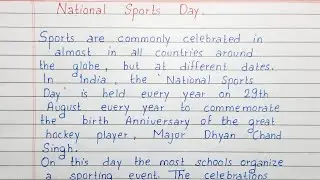 National Sports Day.
Sports are commonly celebrated in
almost in all countries around
the globe, but at different dates.
In India, the 'National Sports
Day' is held every year on 29th
August every year to commemorate
the birth Anniversary of the great
hockey player, Major Dhyan Chand
Singh.
On this day the most schools organize
a sporting event. The celebrations